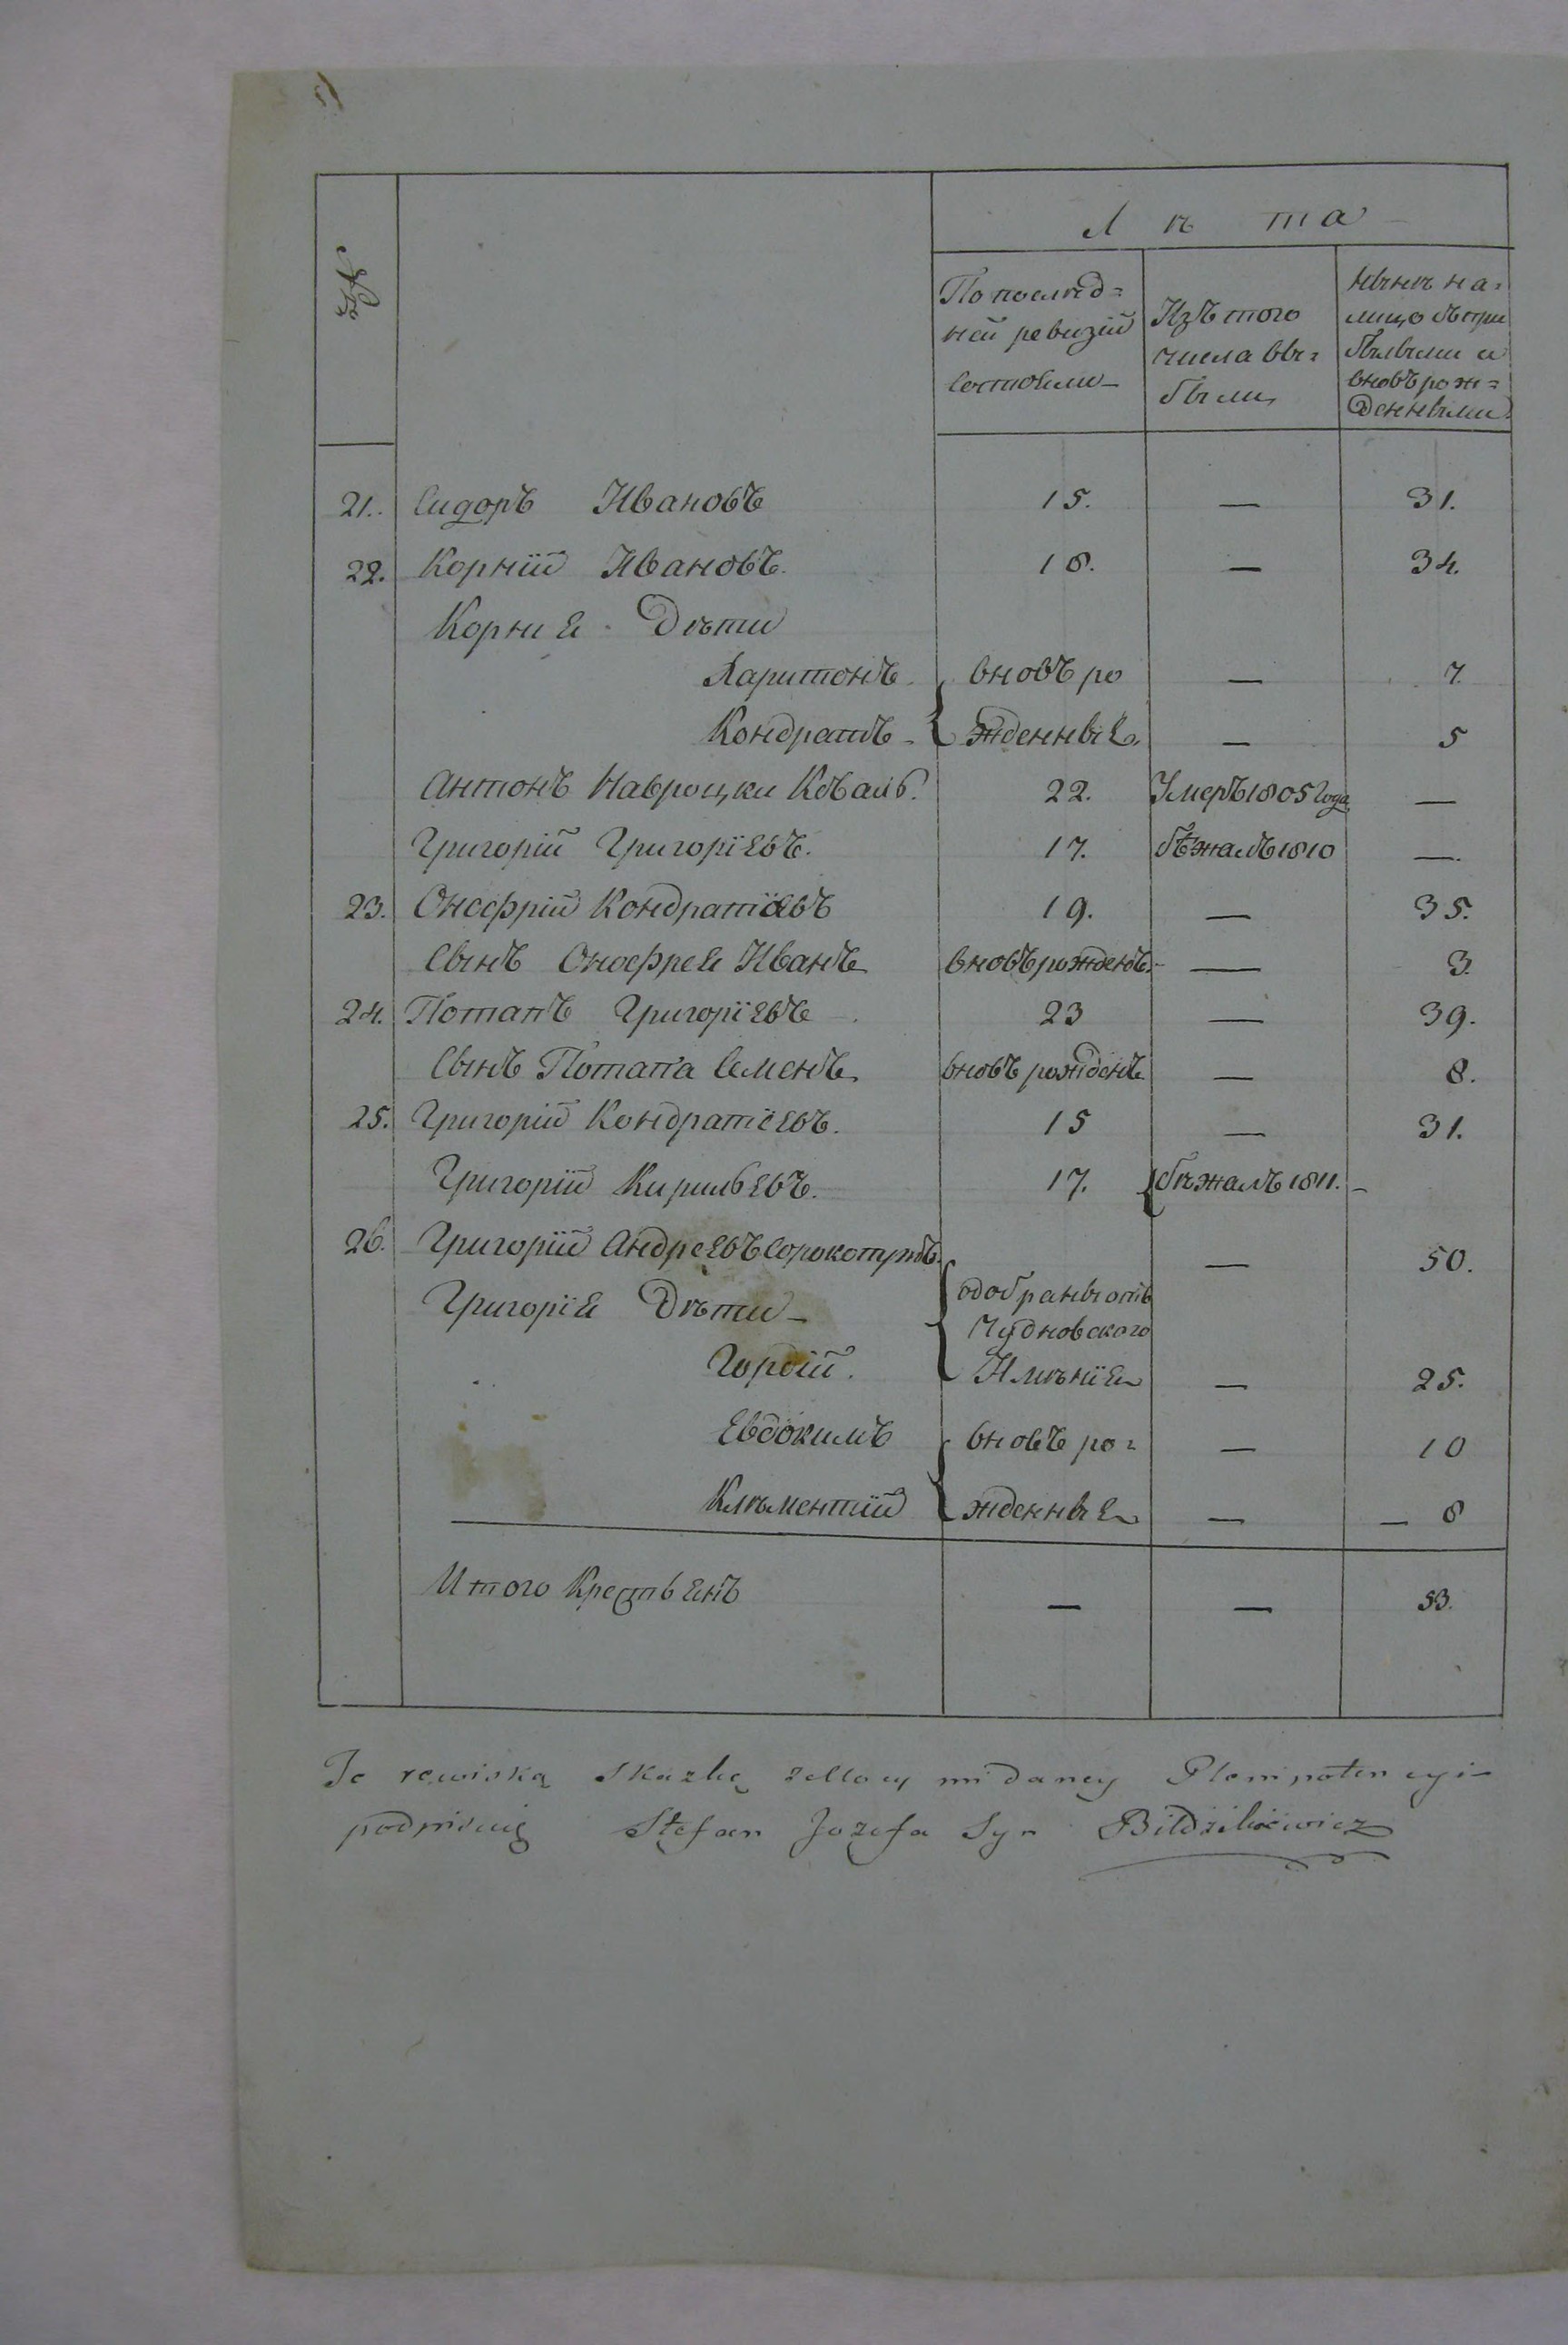 №
Лѣта
По послѣд=
ней ревизіи
состояли
Изъ того
числа вы=
были
Нынѣ на=
лицо съ при
былыми и
вновь рож=
денными
21. Сидоръ Ивановъ 15. — 31.
22. Корній Ивановъ. 18. — 34.
Корнѣя Дѣти
Харитонъ. вновь ро — 7.
Кондратъ — жденные — 5
Антонъ Навроцки Коваль. 22. Умеръ 1805 Года —
Григорій Григоріевъ. 17. бѣжалъ 1810 —.
23. Онофрій Кондратіевъ 19. — 35.
Сынъ Онофрея Иванъ вновь рожденъ — 3.
24. Потапъ Григоріевъ 23 — 39.
Сынъ Потапа Семенъ вновь рожденъ — 8.
25. Григорій Кондратіевъ. 15 — 31.
Григорій Кирильевъ. 17. бѣжалъ 1811. —
26. Григорій Андреевъ — 50.
Григорія Дѣти — одобраны отъ
Чудновского
Гордій. Имѣнія — 25.
Евдокимъ вновь ро= — 10
Клѣментій жденные — — 8
Итого Крестьянъ — — 53.
Te rewiską skazkę z mocy mi daney Plenipotencyi
podpisuię Stefan Jozefa Syn